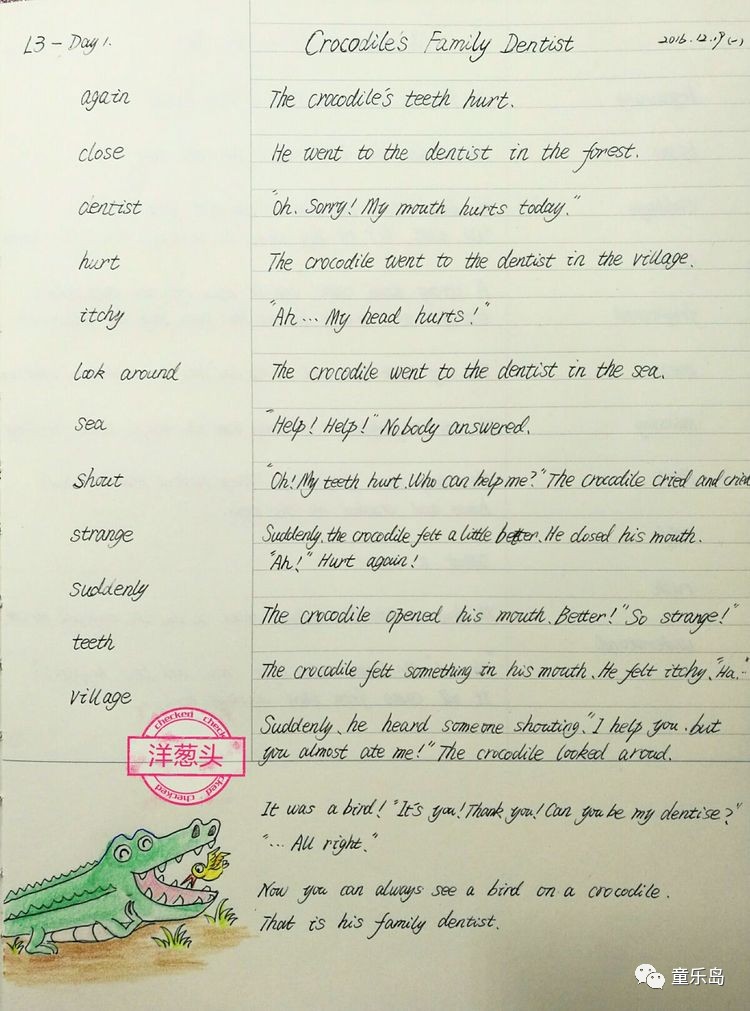 L3 - Day 1.
Crocodile's Family Dentist
2016.12.19(一)
again
The crocodile's teeth hurt.
close
He went to the dentist in the forest.
dentist
"Oh. Sorry! My mouth hurts today."
hurt
The crocodile went to the dentist in the village.
itchy
"Ah... My head hurts!"
look around
The crocodile went to the dentist in the sea.
sea
"Help! Help!" Nobody answered.
shout
"Oh! My teeth hurt. Who can help me?" The crocodile cried and cried
strange
Suddenly, the crocodile felt a little better. He closed his mouth.
"Ah!" Hurt again!
suddenly
The crocodile opened his mouth. Better! "So strange!"
teeth
The crocodile felt something in his mouth. He felt itchy. "Ha...
village
Suddenly, he heard someone shouting. "I help you. but
you almost ate me!" The crocodile looked aroud.
checked
洋葱头
checked
It was a bird! "It's you! Thank you! Can you be my dentise?"
"... All right."
Now you can always see a bird on a crocodile.
That is his family dentist.
童乐岛